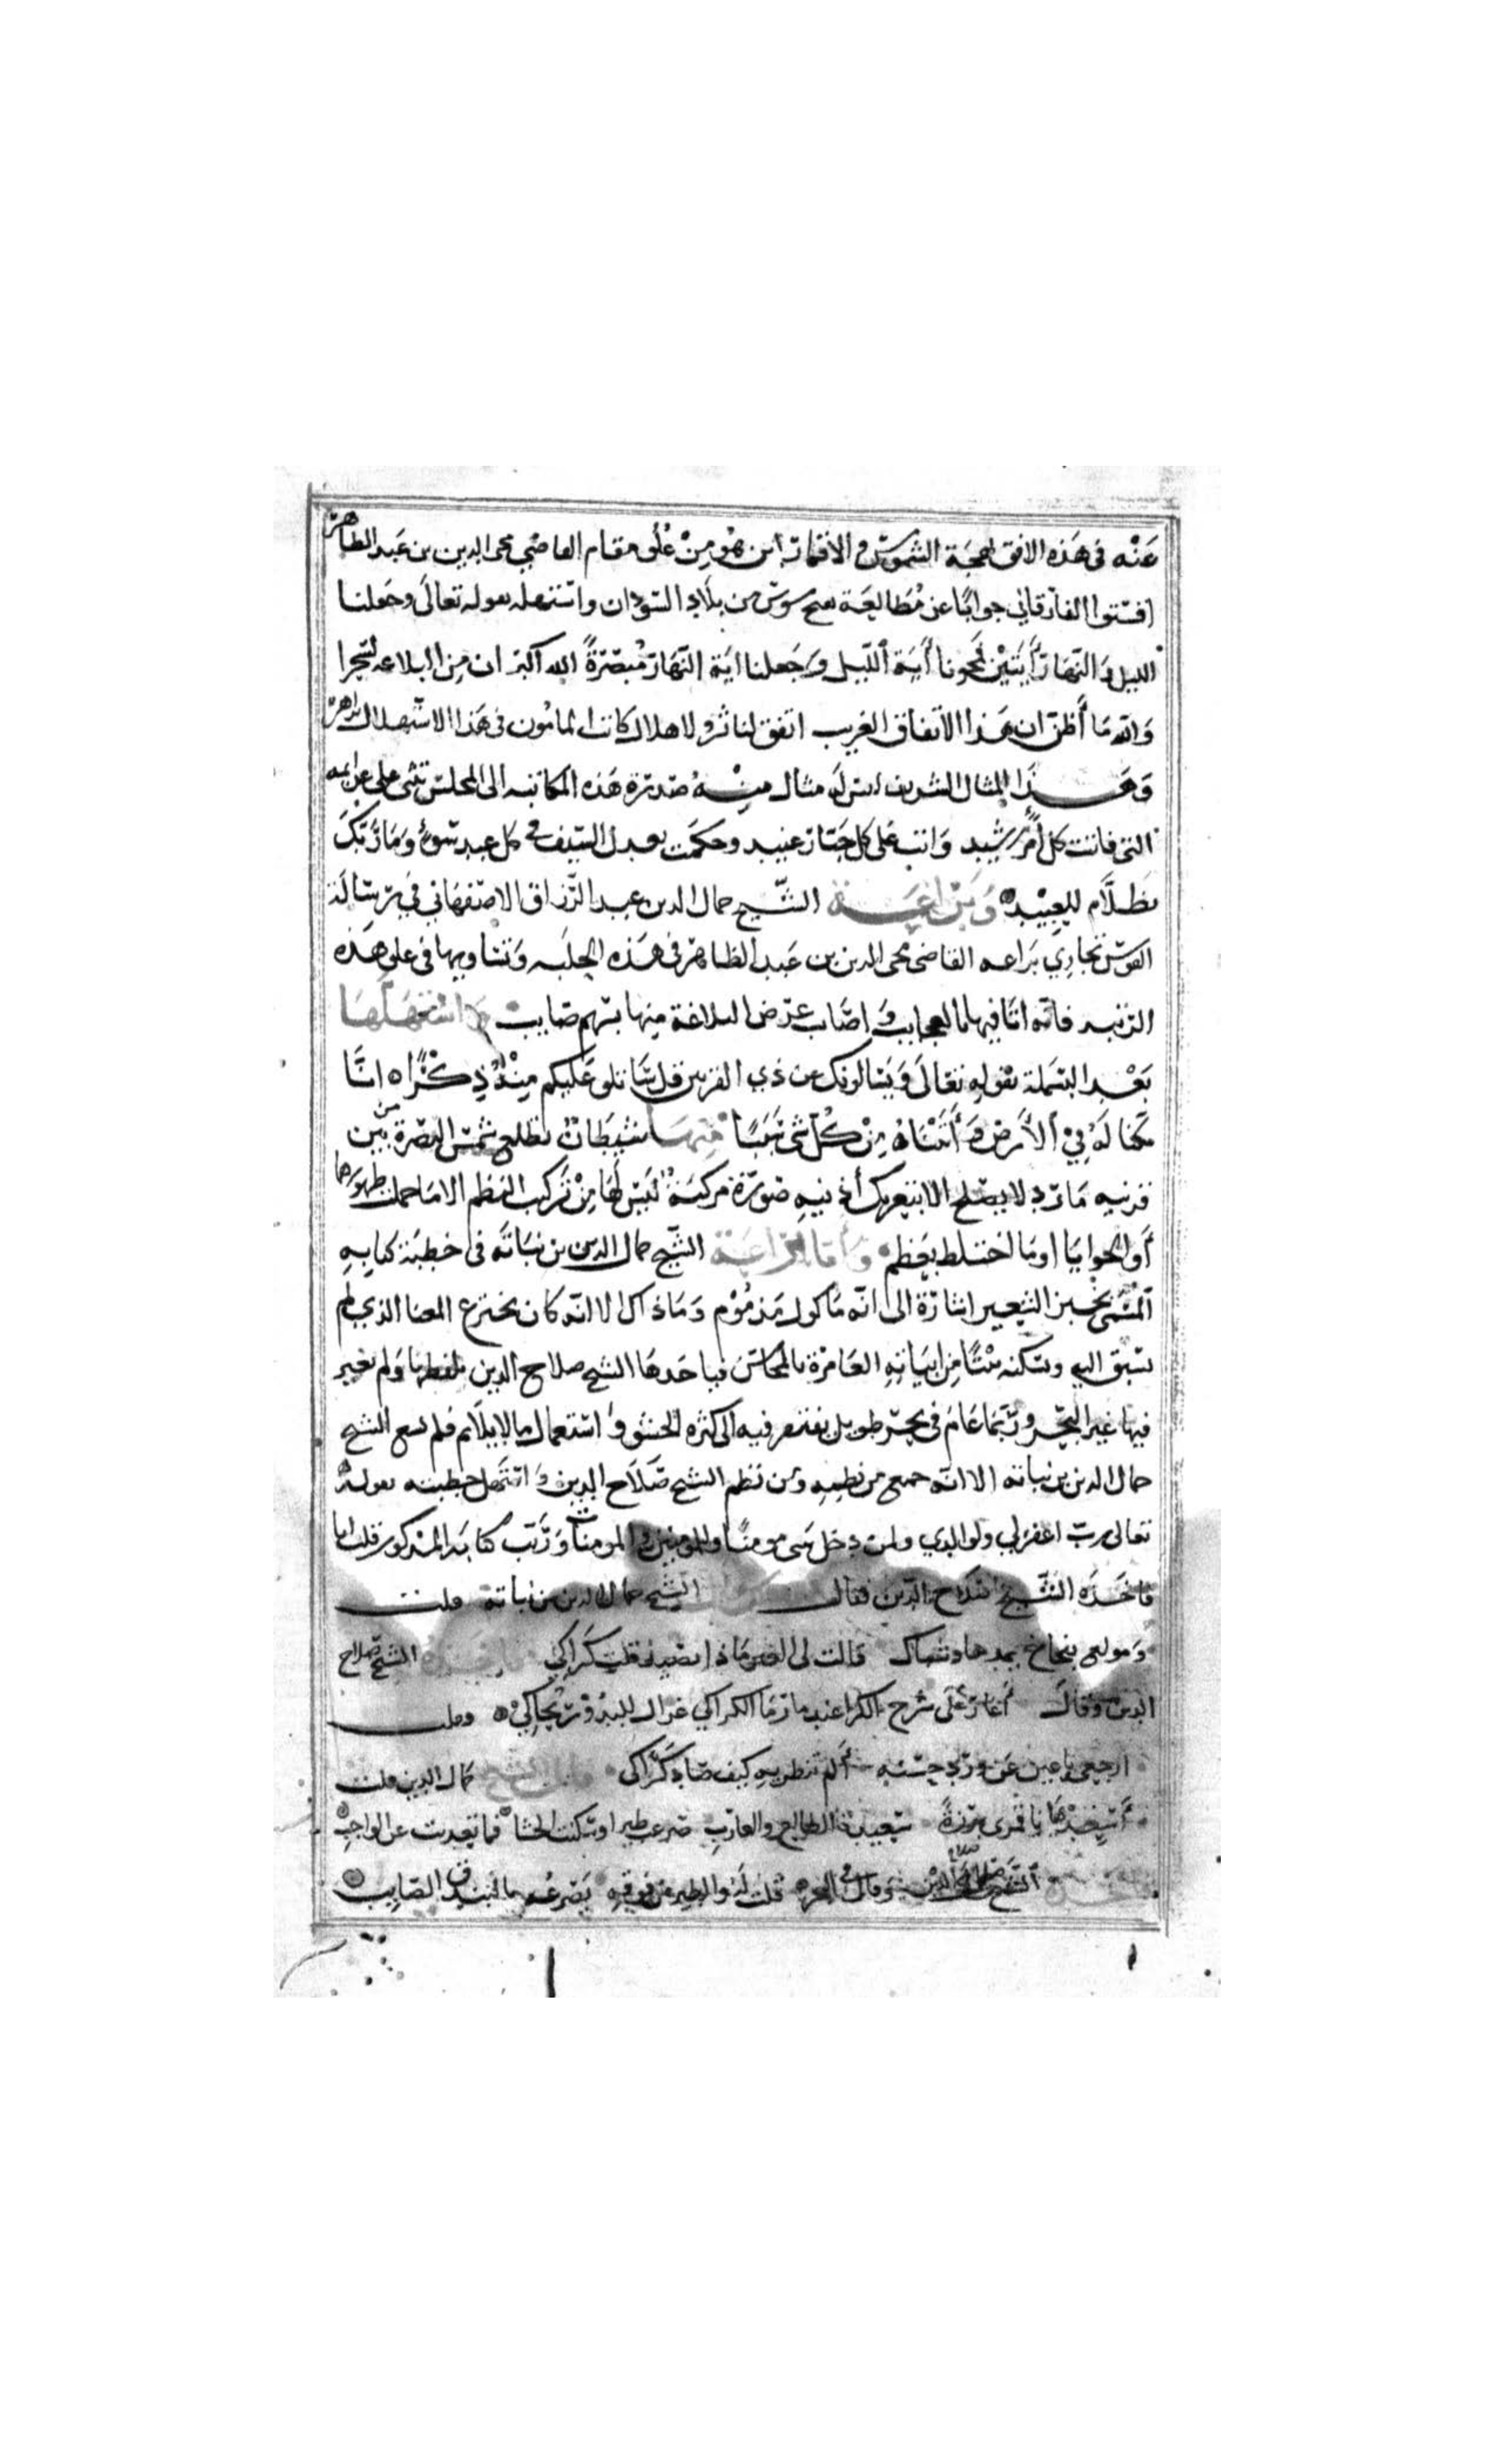 عنه في هذه الافق بهجة الشموس والاقمار اين هو من علو مقام القاضي محى الدين بن عبد الظاهر
الفارقاني جوابا عن مطالعة بفتح سوس من بلاد السودان واستهله بقوله تعالى وجعلنا
الليل والنهار أيتين فمحونا أية الليل وجعلنا اية النهار مبصرة الله اكبر ان من البلاغه لسحرا
والله ما أظن ان هذا الاتفاق الغريب اتفق لناثر ولا هلال كاتب المامون في هذا الاستهلال
وهذا المثال الشريف ليس له مثال منه صدرت هذه المكاتبه الى المجلس تثنى على عزايمه
التى فاتت كل أمر رشيد واتت على كل جبار عنيد وحكمت بعدل السيف في كل عبد سوء وما ربك
بظلام للعبيد وبراعة الشيخ جمال الدين عبد الرزاق الاصفهاني في رسالة
القوس تجاري براعه القاضي محى الدين بن عبد الظاهر في هذه الحلبه وتساويها في علو هذه
الرتبه فانه اتا فيها بالعجايب واصاب غرض البلاغة منها بسهم صايب واستهلها
بعد البسملة بقوله تعالى ويسالونك عن ذي القرنين قل ساتلو عليكم منه ذكرا انا
مكنا له في الأرض وأتيناه من كل شي سببا منها شيطان تطلع شمس النصرة من بين
قرنيه مارد لا يصلح الا بتعريك أذنيه صورة مركبة ليس لها من تركيب النظم الا ما حملت ظهورها
أو الحوايا او ما اختلط بعظم وأما براعة الشيخ جمال الدين بن نباته في خطبة كتابه
المسمى بخبز الشعير اشارة الى انه ماكول مذموم وما ذاك الا انه كان يخترع المعنا الذي لم
يسبق اليه ويسكنه بيتا من ابياته العامرة بالمحاسن فياخذها الشيخ صلاح الدين بلفظها ولم يغير
فيها غير البحر وربما عام في بحر طويل يفتقر فيه الى كثرة الحشو واستعمال ما لا يلايم فلم يسع الشيخ
جمال الدين بن نباته الا انه جمع من نظمه ومن نظم الشيخ صلاح الدين واستهل خطبته بقوله
تعالى رب اغفر لي ولوالدي ولمن دخل بيتى مومنا وللمومنين والمومنات ورتب كتابه المذكور قلت انا
فاخذه الشيخ صلاح الدين فقال الشيخ جمال الدين بن نباتة قلت
ومولع بفخاخ يمدها وشباك قالت لى العين ماذا يصيد قلت كراكي فاخذه الشيخ صلاح
الدين وقال أغار على سرح الكرا عند ما رما الكراكي غزال للبدور يحاكي وقلت
ارجعي يا عين عن ورد حسنه ألم تنظريه كيف صاد كراكى قال الشيخ جمال الدين قلت
أسعد بها يا قمرى برزة سعيدة الطالع والغارب صرعت طيرا وسكنت الحشا فما تعديت عن الواجب
فاخذه الشيخ صلاح الدين وقال قلت له والطير من فوقه يصرعه بالبندق الصايب